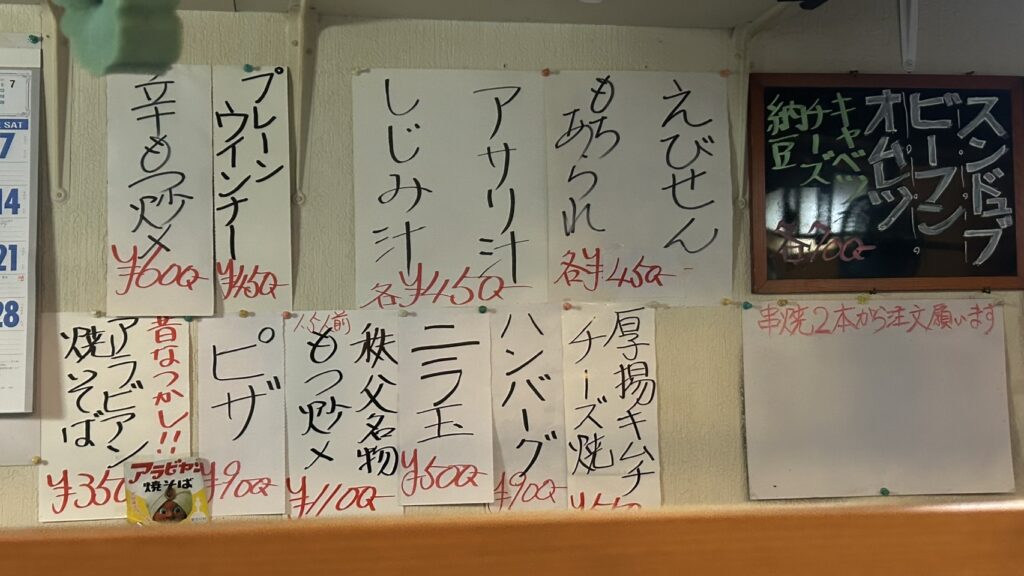 スンドゥブ
ビーフン
オムレツ
キャベツ
チーズ
納豆
各900
えびせん
もちあられ
各¥450
アサリ汁
しじみ汁
各¥450
プレーン
ウインナー
¥450
辛もつ炒メ
¥600
串焼2本から注文願います
厚揚キムチ
チーズ焼
ハンバーグ
¥900
ニラ玉
¥500
秩父名物
もつ炒メ
¥1100
ピザ
¥900
昔なつかし!!
アラビアン
焼いそば
¥350
アラビヤン
焼そば
7
SAT
7
14
21
28